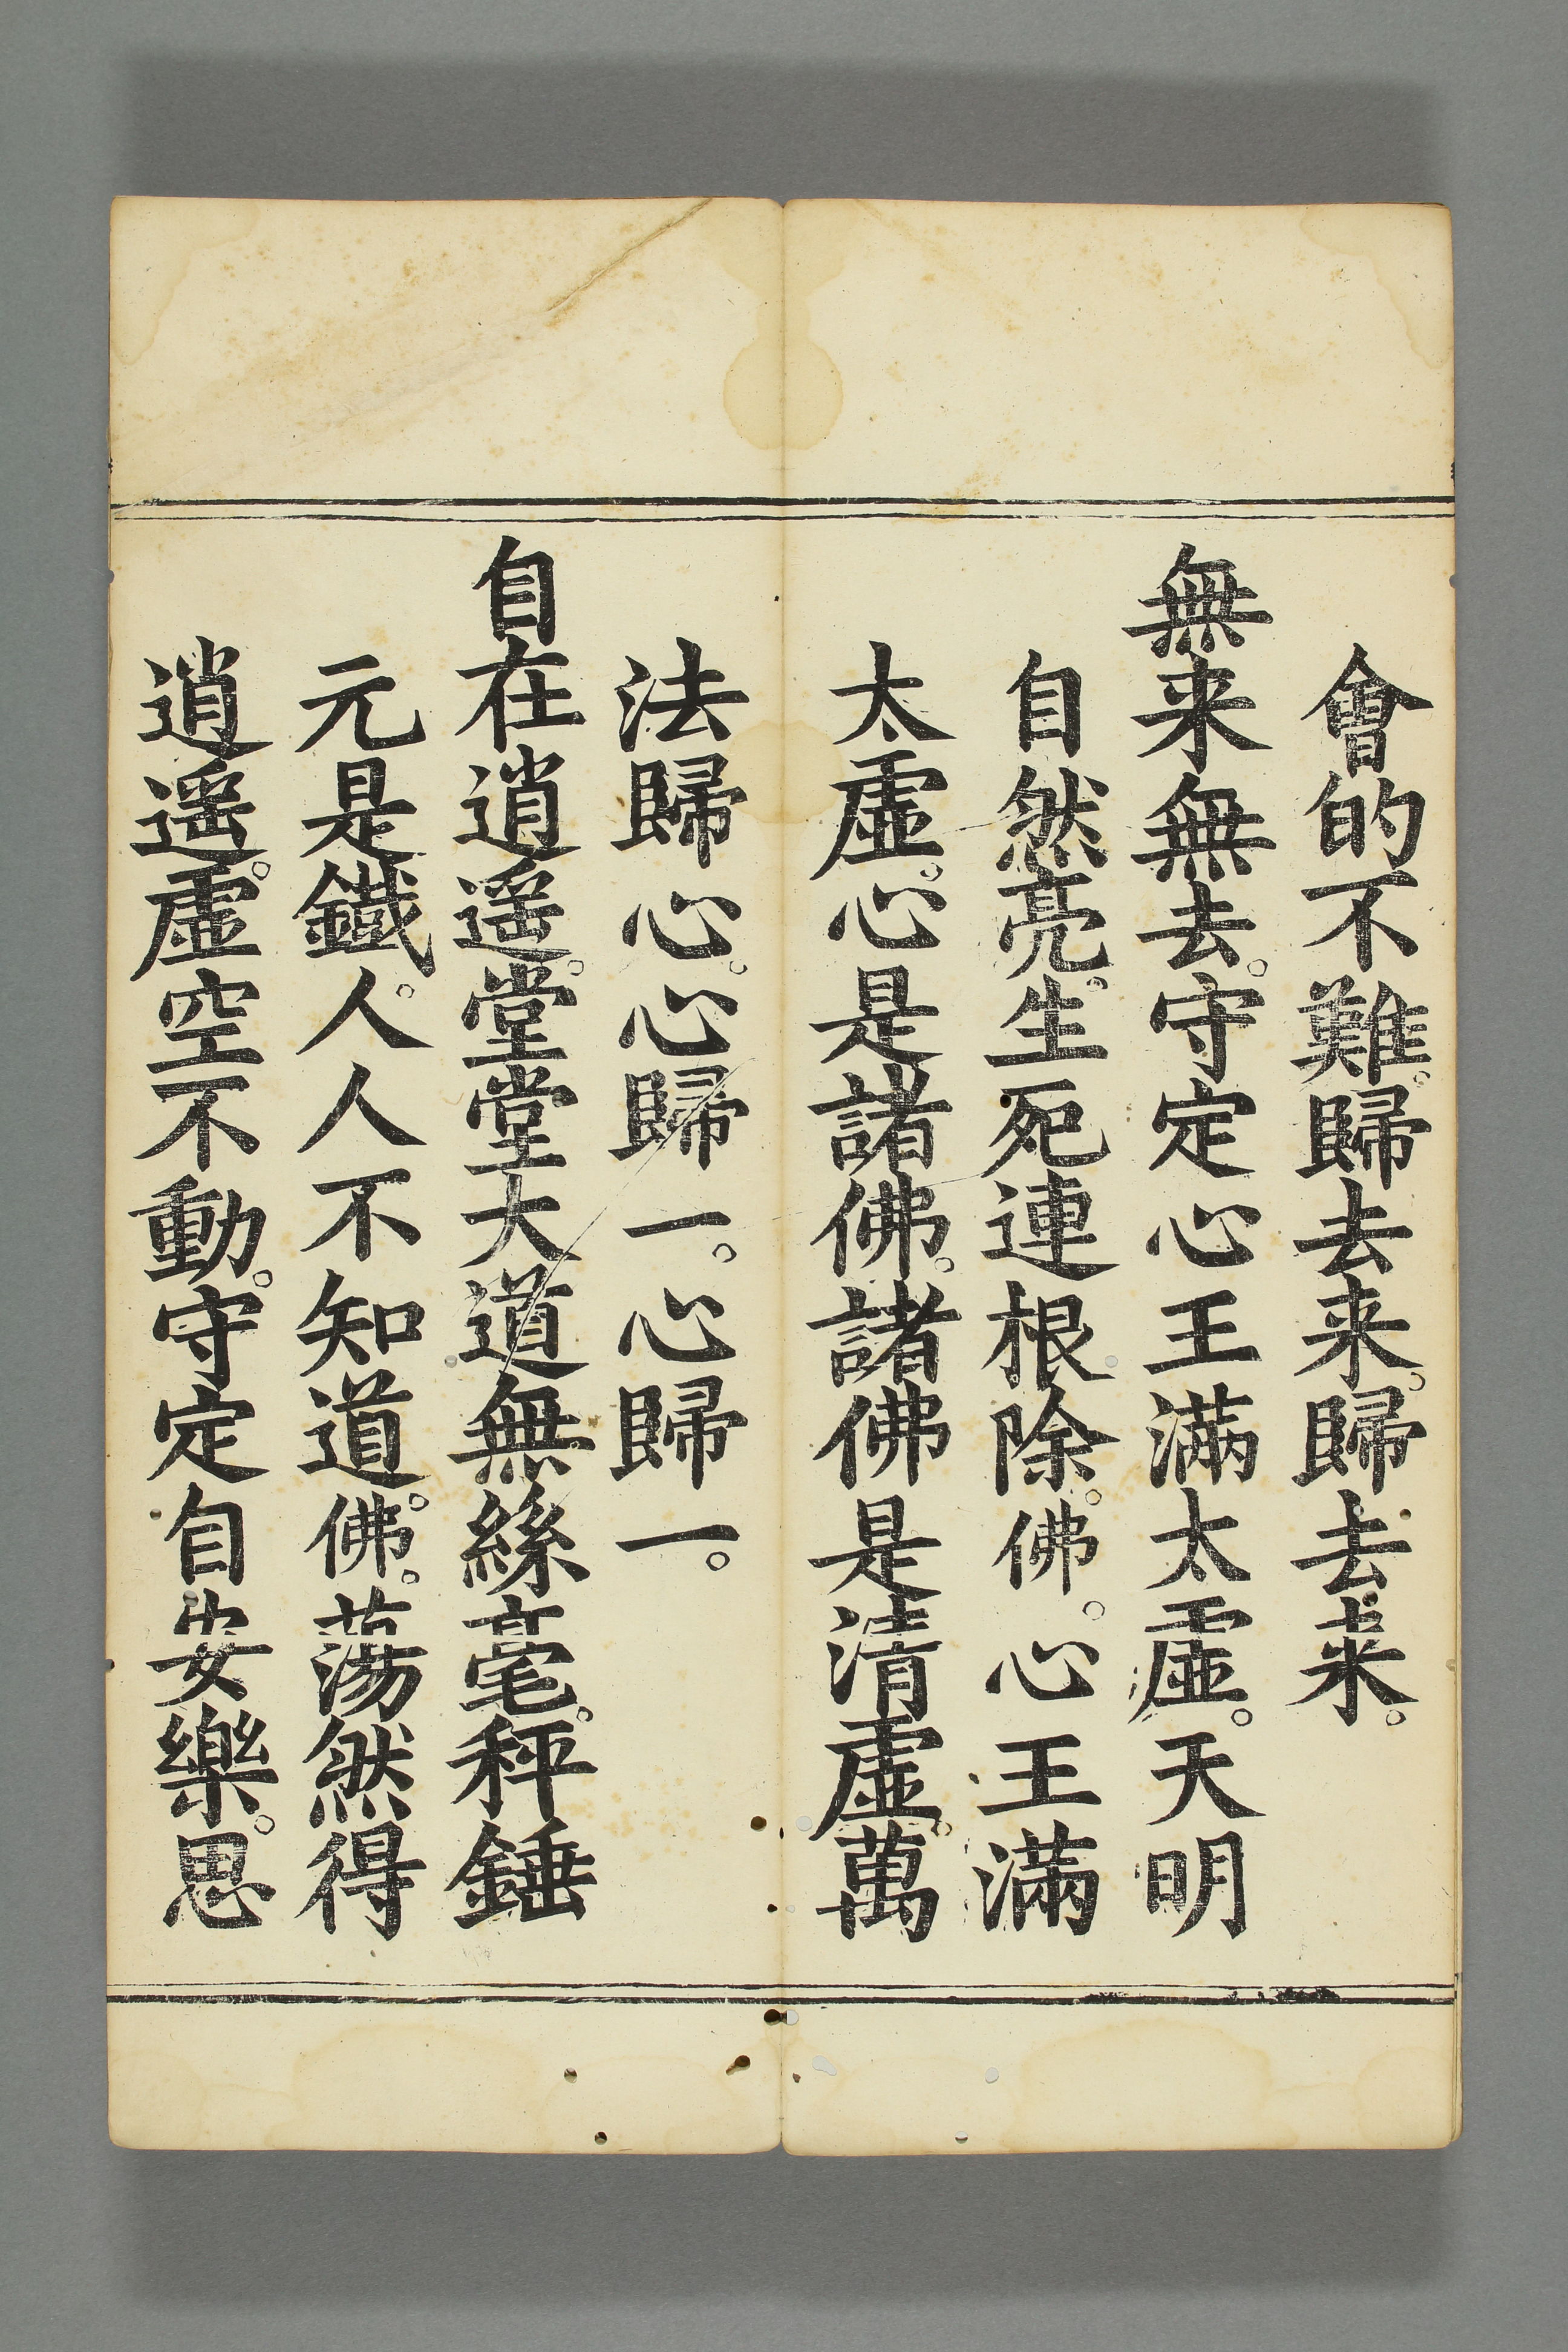 會的不難。歸去来。歸去来。
無来無去。守定心王滿太虛。天明
自然亮。生死連根除。佛。心王滿
太虛。心是諸佛。諸佛是清虛。萬
法歸心。心歸一。心歸一。
自在逍遥。堂堂大道無絲毫。秤錘
元是鐵。人人不知道。佛。蕩然得
逍遥。虛空不動。守定自安樂。思